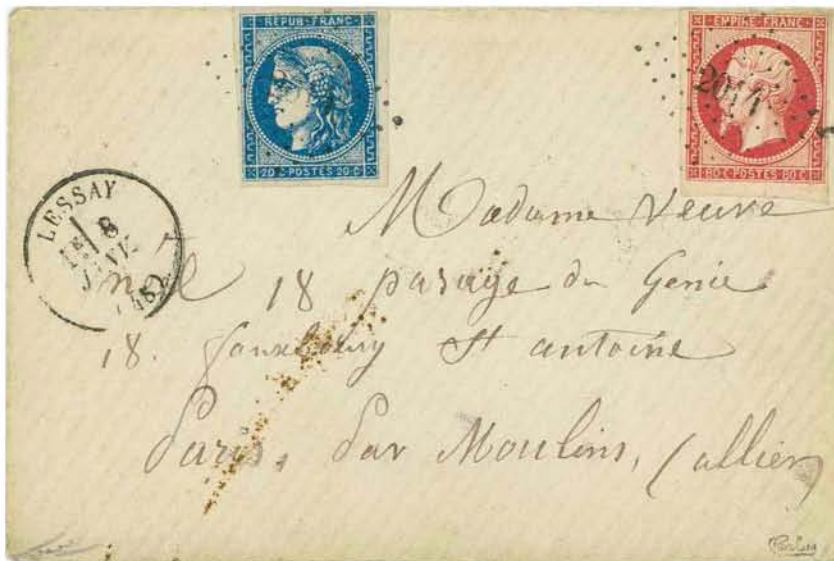 REPUB · FRANC ·
20 C POSTES 20 C
EMPIRE · FRANC ·
80 C · POSTES · 80 C
2014
LESSAY
8
JANV.
Madame Veuve
18 passage du Genie
18. fauxbourg St antoine
Paris, par Moulins, (allier)